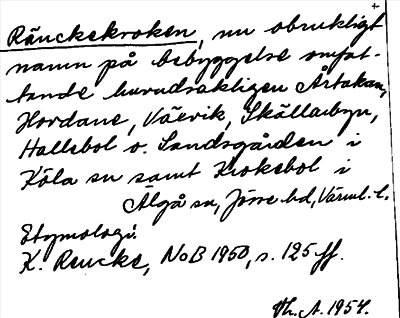 Ränckekroken, nu obrukligt
namn på bebyggelse omfat-
tande huvudsakligen Årtakan,
Hordane, Väervik, Skällarbyn,
Hallebol o. Sandsgården i
Köla sn samt Krokebol i
Älgå sn, Jösse hd, Värml. l.
Etymologi:
K. Rencke, NoB 1950, s. 125 ff.
Vh. A. 1954.